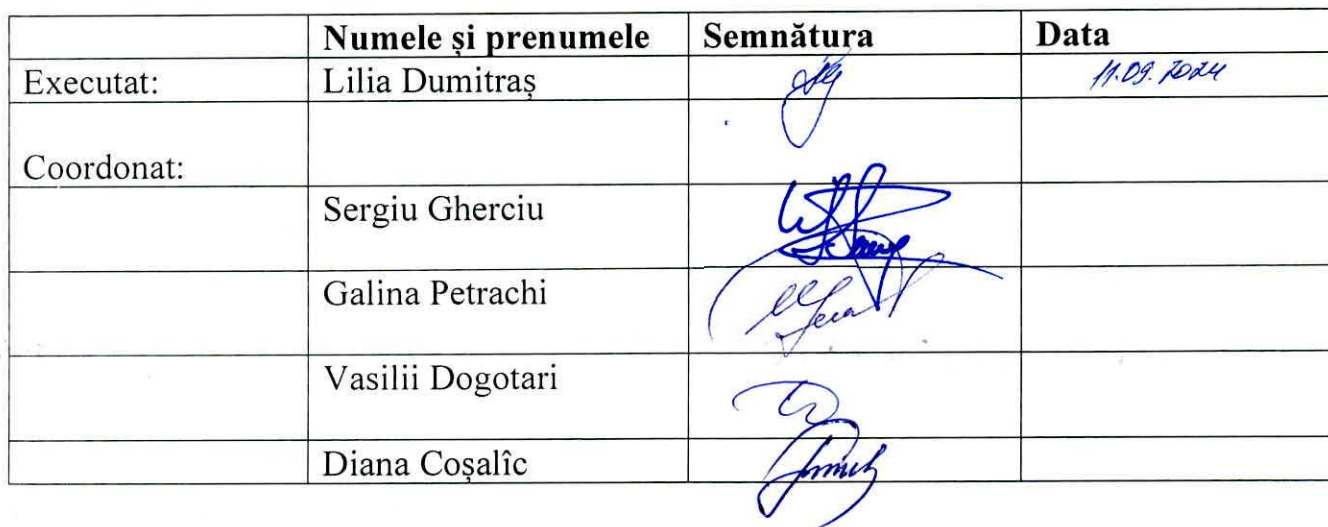 Numele și prenumele Semnătura Data
Executat: Lilia Dumitraș 11.09.2024
Coordonat:
Sergiu Gherciu
Galina Petrachi
Vasilii Dogotari
Diana Coșalîc